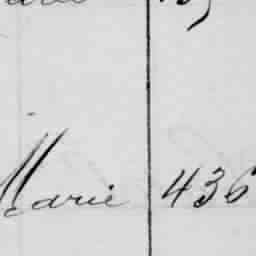 Marie 436